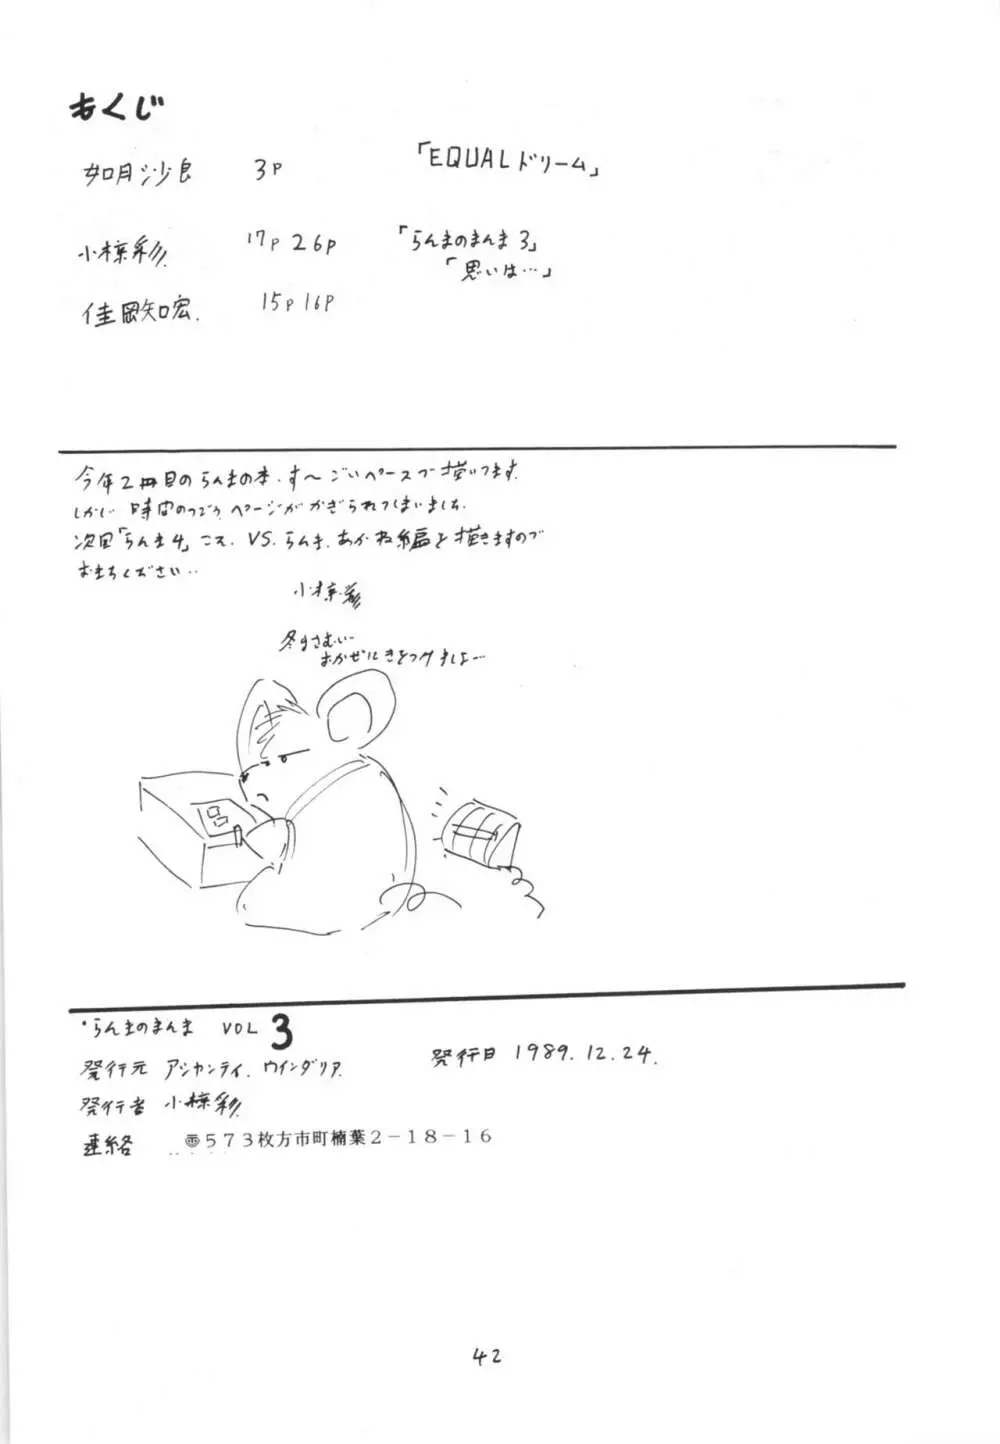 もくじ
如月沙良 3P 「EQUALドリーム」
小椋彩 17P 26P 「らんまのまんま3」
「思いは…」
佳岡知宏. 15P 16P
今年2冊目のらんまの本、す〜ごいペースで描いてます。
しかし時間のつごう、ページがかぎられてしまいました。
次回「らんま4」こそ、VS. らんま、あかね編を描きますので
おまちください…
小椋彩
冬はさむい…
おかぜにきをつけましょ…
・らんまのまんま VOL 3
発行元 アシャンティ、ウインダリア. 発行日 1989.12.24.
発行者 小椋彩
連絡 〠573枚方市町楠葉2-18-16
42